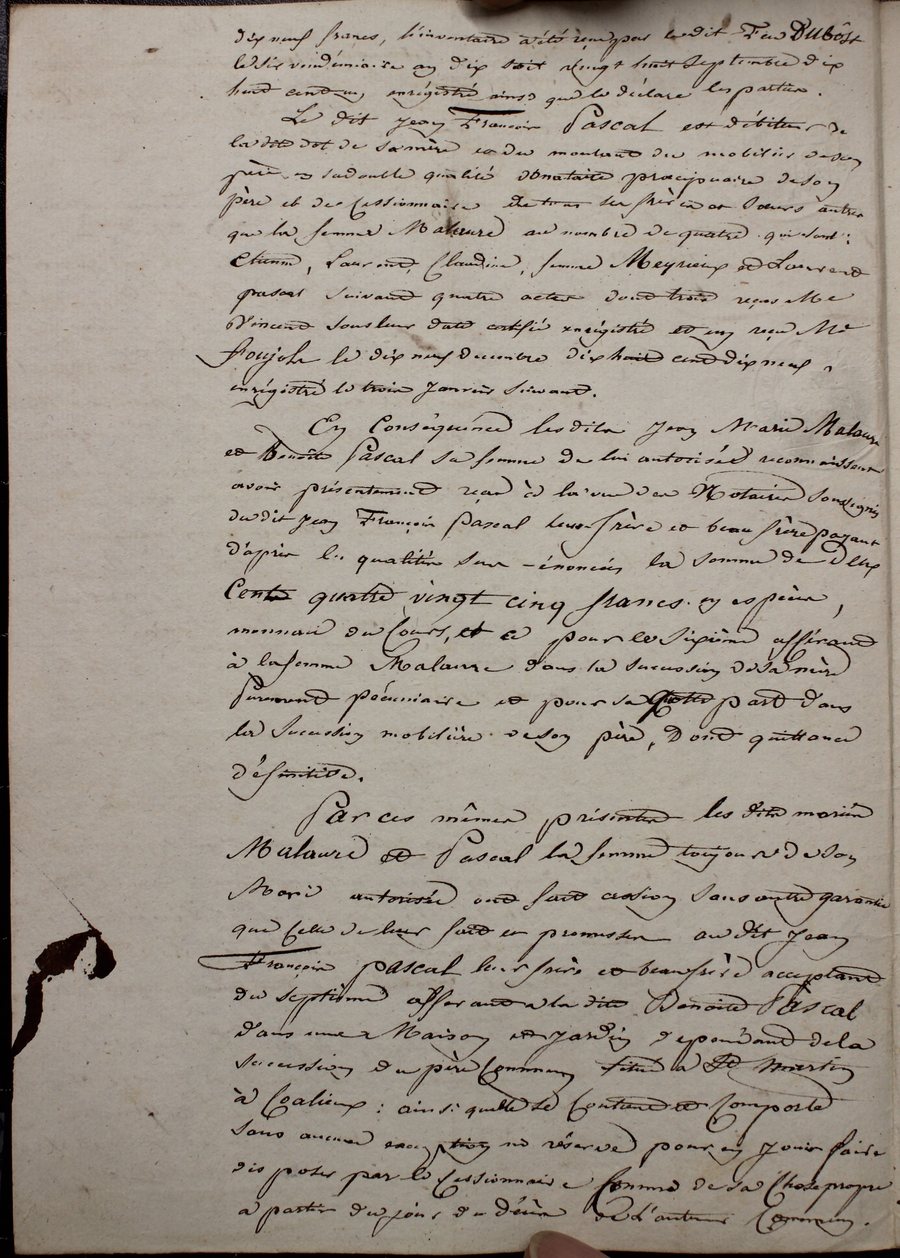 dix neuf francs, l'inventaire a été reçu par le dit Feu Dubost
le six vendémiaire an dix soit vingt huit Septembre dix
huit cent un enrégistré ainsi que le déclare les parties.
Le dit Jean François Pascal est débiteur de
la dite dot de sa mère et du montant du mobilier de son
père en sa double qualité donataire précipuaire de son
père et de Cessionnaire de tous ses frères et Sœurs autres
que la femme Malaure au nombre de quatre qui sont :
Etienne, Laurent, Claudine, femme Meyrieux et
pascal suivant quatre actes dont trois reçus Me
Vincent sous leur date certifié enrégistré et un reçu Me
Foujols le dix neuf decembre dix huit cent dix neuf,
enrégistré le trois Janvier Suivant.
En Conséquence les dits Jean Marie Malaure
et Benoite Pascal sa femme de lui autorisée reconnaissent
avoir présentement reçu à la vue des Notaires Soussignés
du dit Jean François Pascal leur frère et beau frère payant
d'après les qualités sus-énoncées la somme de Deux
Cents quatre vingt cinq francs en espèces,
monnaie du Cours, et ce pour le Sixième afférant
à la femme Malaure dans la succession de sa mère
Purement pécuniaire et pour sa part dans
la Succession mobilière de son père, Dont quittance
définitive.
Par ces mêmes présentes les dits mariés
Malaure et Pascal la femme toujours de son
Mari autorisée ont fait cession sans autre garantie
que celle de leurs faits et promesses au dit Jean
François pascal leur frère et beau frère acceptant
du septième afférant a la dite Benoite Pascal
dans une Maison et Jardin dépendant de la
succession du père Commun situé à St Martin
à Coalieux : ainsi qu'elle se Contient et Comporte
sans aucune exception ni réserve pour en Jouir faire
disposer par le Cessionnaire Comme de sa Chose propre
a partir du jour du décès de l'auteur Commun.